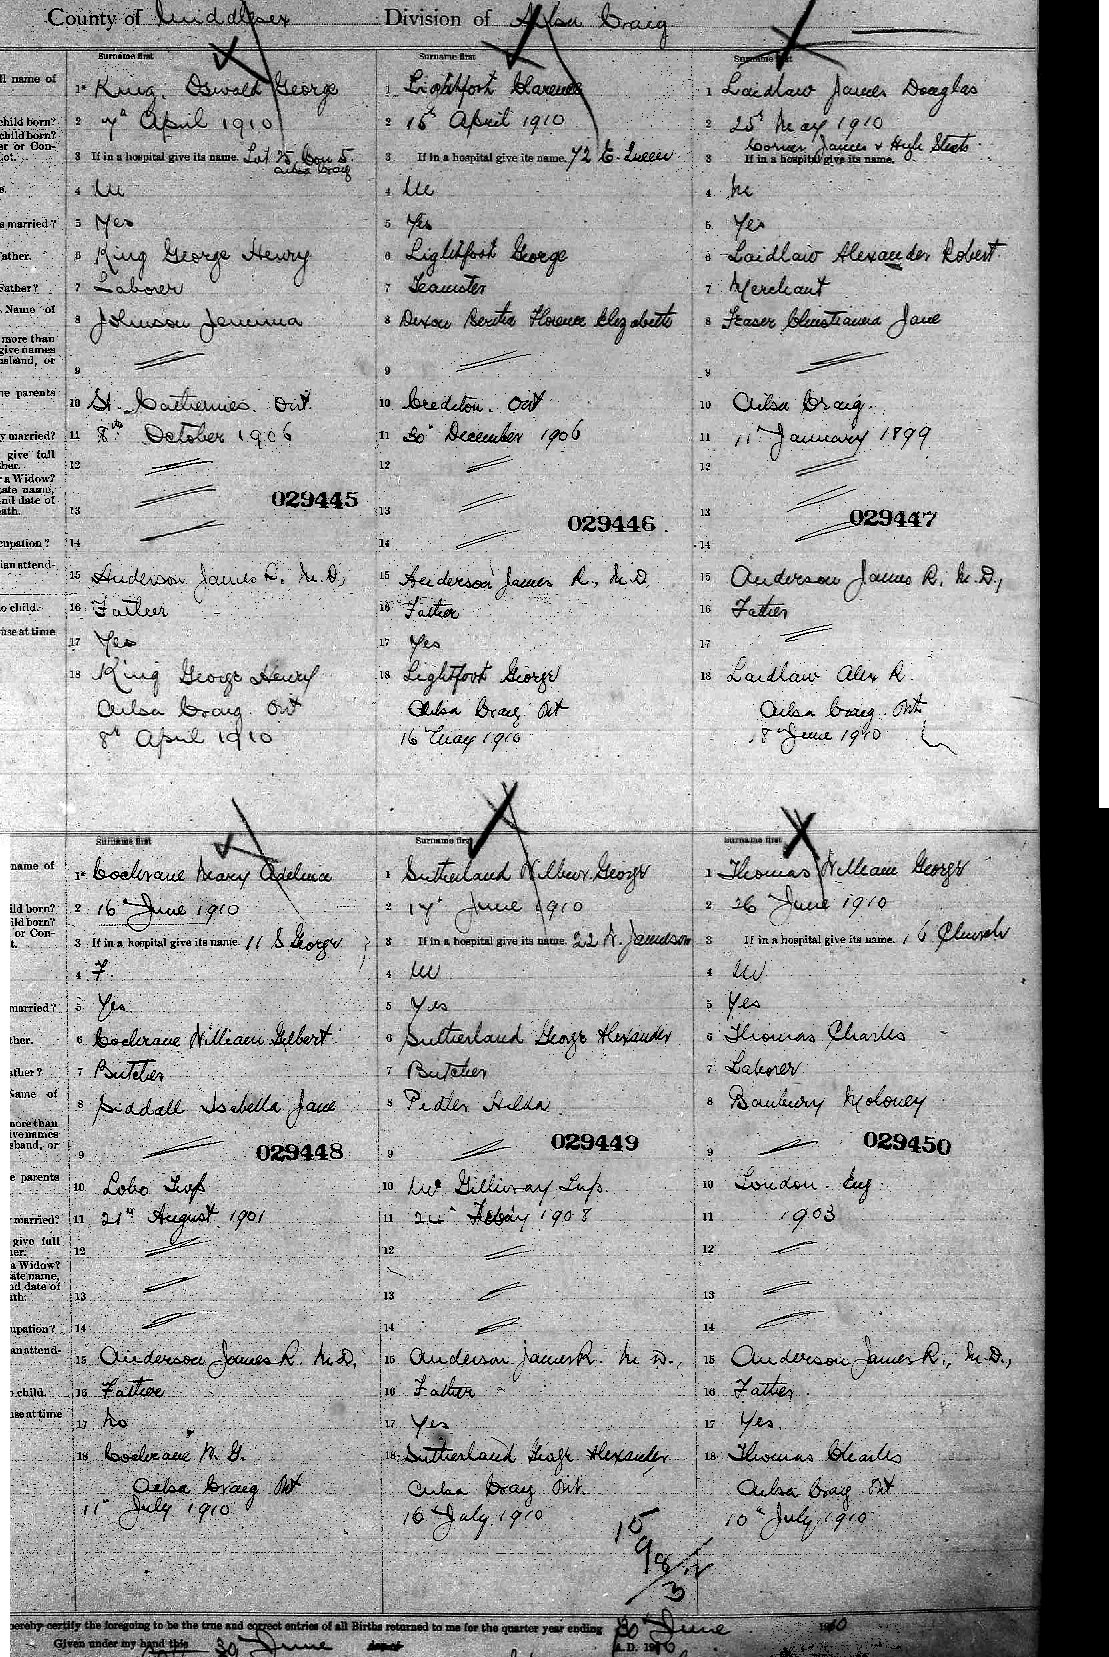 County of Middlesex Division of Ailsa Craig
Surname first
1 King, Oswald George
2 7th April 1910
3 If in a hospital give its name. Lot 25 Con 5.
Ailsa Craig
4 M
5 Yes
6 King George Henry
7 Laborer
8 Johnson Jemima
9
10 St. Catherines. Ont.
11 8th October 1906
12
029445
13
14
15 Anderson James R. M.D,
16 Father
17 Yes
18 King George Henry
Ailsa Craig Ont
8th April 1910
Surname first
1 Lightfoot Clarence
2 15th April 1910
3 If in a hospital give its name. 72 E. Queen
4 M
5 Yes
6 Lightfoot George
7 Teamster
8 Dixon Bertha Florence Elizabeth
9
10 Crediton. Ont
11 30th December 1906
12
13
029446
14
15 Anderson James R., M.D
16 Father
17 Yes
18 Lightfoot George
Ailsa Craig Ont
16 May 1910
Surname first
1 Laidlaw James Douglas
2 25th May 1910
Corner James & High Streets
3 If in a hospital give its name.
4 M
5 Yes
6 Laidlaw Alexander Robert
7 Merchant
8 Fraser Christianna Jane
9
10 Ailsa Craig.
11 11th January 1899
12
13
029447
14
15 Anderson James R. M.D.,
16 Father
17
18 Laidlaw Alex R.
Ailsa Craig Ont
18th June 1910
Surname first
1 Cochrane Mary Adelina
2 16th June 1910
3 If in a hospital give its name. 11 S George
4 F.
5 Yes
6 Cochrane William Gilbert
7 Butcher
8 Siddall Isabella Jane
029448
9
10 Lobo Twp
11 21st August 1901
12
13
14
15 Anderson James R. M.D,
16 Father
17 No
18 Cochrane W. G.
Ailsa Craig Ont
11th July 1910
Surname first
1 Sutherland Wilbur George
2 17th June 1910
3 If in a hospital give its name. 22 N. Jameison
4 M
5 Yes
6 Sutherland George Alexander
7 Butcher
8 Pedler Hilda
029449
9
10 McGillivray Twp.
11 1908
12
13
14
15 Anderson James R. M.D.,
16 Father
17 Yes
18 Sutherland George Alexander
Ailsa Craig Ont.
16th July 1910
Surname first
1 Thomas William George
2 26 June 1910
3 If in a hospital give its name. 16 Church
4 M
5 Yes
6 Thomas Charles
7 Laborer
8 Banbury Moloney
029450
9
10 London. Eng.
11 1903
12
13
14
15 Anderson James R., M.D.,
16 Father
17 Yes.
18 Thomas Charles
Ailsa Craig Ont
10th July 1910
hereby certify the foregoing to be the true and correct entries of all Births returned to me for the quarter year ending 30th June 1910
Given under my hand this 30th June A.D. 1910